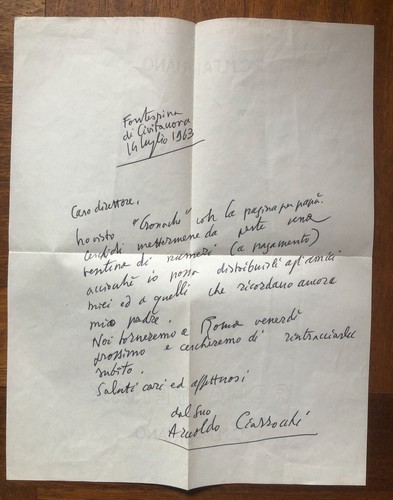 Fontespina
di Civitanova
14 luglio 1963
Caro direttore,
ho visto "Cronache" con la pagina per papà.
cerchi di mettermene da parte una
ventina di numeri (a pagamento)
acciocchè io possa distribuirli agli amici
miei ed a quelli che ricordano ancora
mio padre.
Noi torneremo a Roma venerdì
prossimo e cercheremo di rintracciarla
subito.
Saluti cari ed affettuosi
dal suo
Arnoldo Ciarrocchi